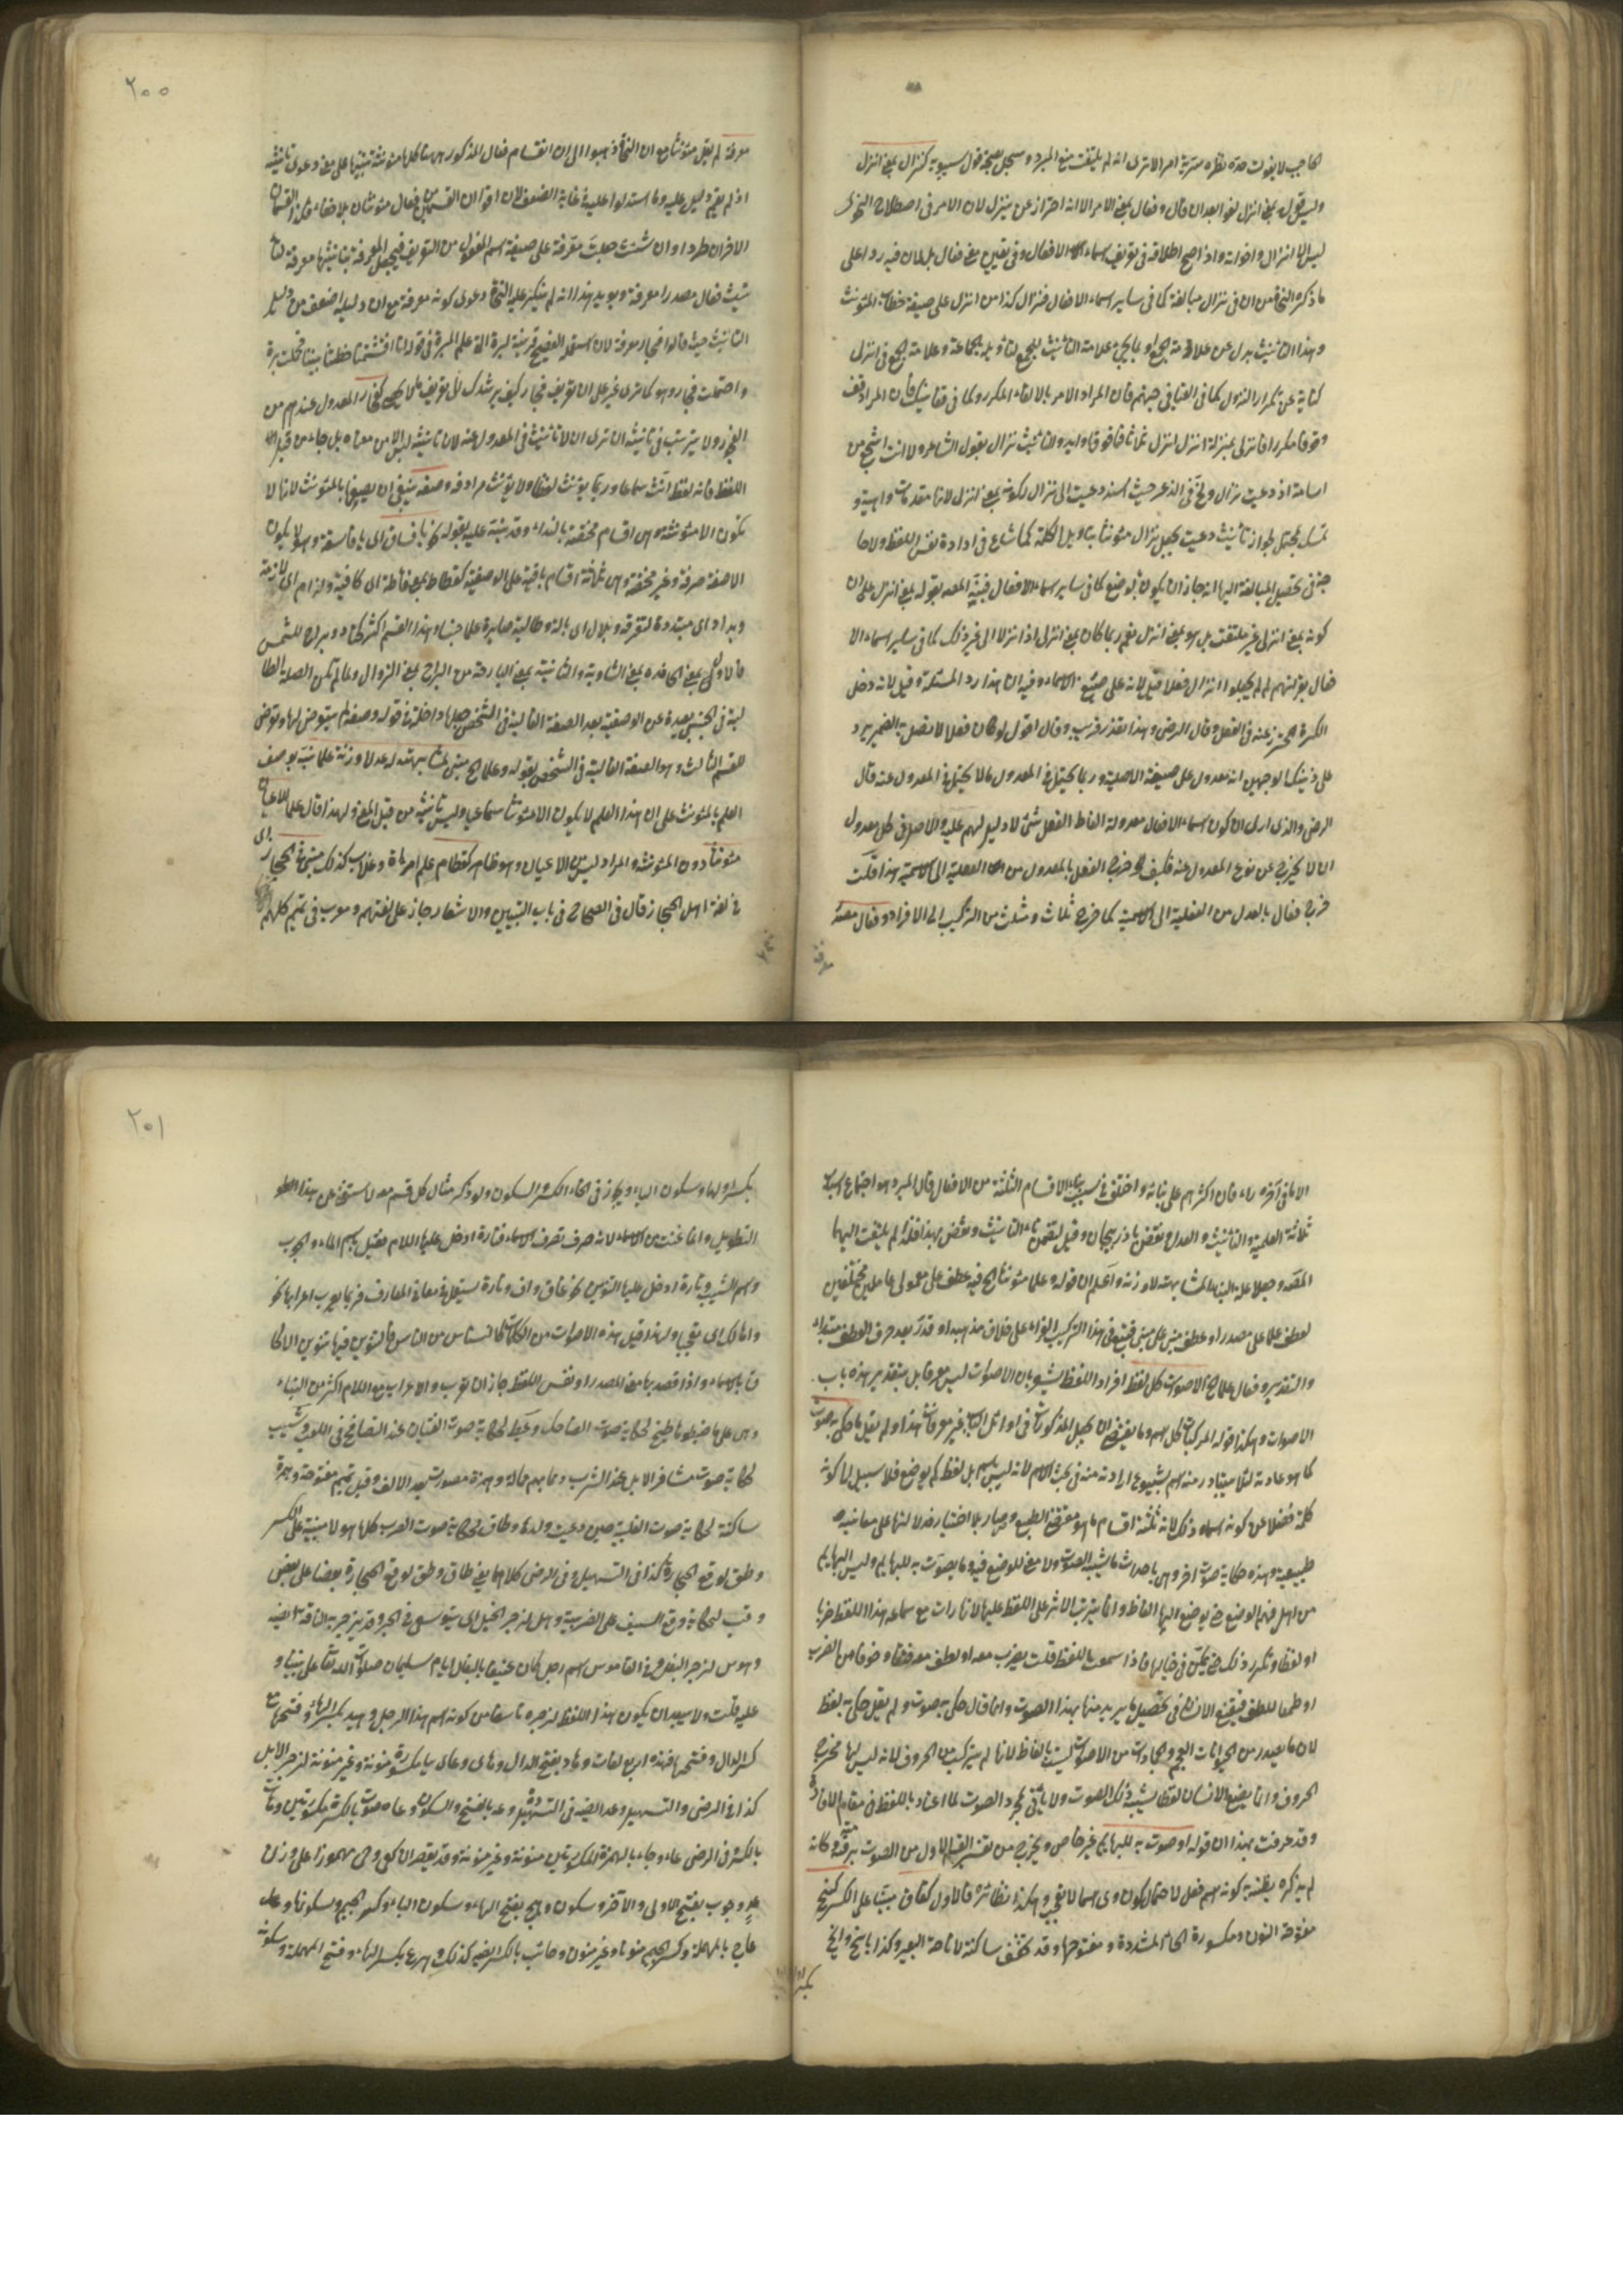 الحاجب لا يفوت حدة نظره سرية امر الا ترى انه لم يلتفت منع المبرد وسجل بصحة قول سيبويه كنزال بمعنى انزل
وليس قوله بمعنى انزل لغوا بعد ان قال وفعال بمعنى الامر الا انه احتراز عن ينزل لان الامر في اصطلاح النحوي
ليس الا انزال واخواته واذا صح اطلاقه في تعريف اسماء الافعال وفي تعيين معنى فعال بل لان فيه ردا على
ما ذكره النحاة من ان في نزال مبالغة كما في ساير اسماء الافعال فنزال كذا من انزل على صيغة خطاب المؤنث
وهذا التأنيث بدل عن علامة الجمع او يا يجئ علامة التأنيث للجمع لتأويله بجماعة وعلامة الجمع في انزل
كناية عن تكرار النزول كما في القيا في جهنم فان المراد الامر بالالقاء المكرر وكما في قفا نبك فان المراد قف
وقوفا مكررا فانزلى بمنزلة انزل انزل ثلاثا فما فوقها وايد والتأنيث نزال بقول الشاعر ولانت اشجع من
اسامة اذ دعيت نزال ولج في الذعر حيث اسند دعيت الى نزال لكونه بمعنى انزل لانها مقدمات واهية و
تمسك بمحتمل لجواز تأنيث دعيت بجعل نزال مؤنثا بتاويل الكلمة كما شاع في ارادة نفس اللفظ ولا حا
جة في تحصيل المبالغة اليها انه جاز ان يكون بالوضع كما في ساير اسماء الافعال فنبه المصه بقوله بمعنى انزل على ان
كونه بمعنى انزلى غير ملتفت بل هو بمعنى انزل نعم ربما كان بمعنى انزلى او انزلا الى غير ذلك كما في ساير اسماء الا
فعال بقولهم لم لم يجعلوا نزال فعلا قيل لانه على صيغ الاسماء وفيه ان هذا رد المسئلة وقيل لانه دخل
الكسرة المحترز عنه في الفعل وقال الرضى وهذا تعذر قريب وقال اقول لو كان فعلا لاتصل به الضمير يرد
على ذينك الوجهين انه معدول على صيغة الاصلية وربما يحتمل في المعدول ما لا يحتمل في المعدول عنه قال
الرضى والذى ارى ان كون اسماء الافعال معدولة الفاظ الفعل شئ لا دليل لهم عليه والاصل في كل معدول
ان لا يخرج عن نوع المعدول عنه فكيف خرج الفعل بالمعدول من الفعلية الى الاسمية هذا قلت
خرج فعال بالعدل من الفعلية الى الاسمية كما خرج ثلاث ومثلث من التركيب الى الافراد وفعال معنـه
معرفة
٢٠٠
معرفة لم يقل مؤنثا مع ان النحاة ذهبوا الى ان اقسام فعال المذكور ههنا كلها مؤنثة تنبيها على ضعف دعوى تانيثه
اذ لم يقم دليل عليه وما استدلوا عليه في غاية الضعف لان اقوى ان القسمين من فعال مؤنثان بلا خفاء فكذا القسمان
الاخران طردا وان شئت جعلت معرفة على صيغة اسم المفعول من التعريف فيجعل المعرفة بتانيثها معرفة لتا
نيث فعال مصدرا معرفة ويويد هذا انه لم ينكر عليه النحاة دعوى كونه معرفة مع ان دليله اضعف من دليل
التأنيث حيث قالوا فجار معرفة لان استعمال الفصيح قرينة لبرة التى علم المبرة في قوله انا اقتسمنا خطتينا بيننا فحملت برة
واحتملت فجار وهو كما ترى غير على ان تعريف فجار كيف يرشدك الى تعريف مثل كفجار المعدول عندهم من
الفجور ولا يترتب في تانيثه الا ترى ان لا تانيث في المعدول عنه لان تانيثه ليس الا من معناه بل جاء من قبل
اللفظ فانه لفظ انث سماعا وربما يؤنث لفظ ولا يؤنث مرادفه وصفة ينبغي ان يصفها بالمؤنث لانها لا
تكون الا مؤنثة وهى اقسام مختصة بالنداء وقد نبه عليه بقوله نحو يا فساق اى يا فاسقة وهو لا يكون
الا صفة صرفة وغير مختصة وهى ثلاثة اقسام باقية على الوصفية كقطاط بمعنى قاطة اى كافية ولزام اى لازمة
وبداد اى مبتددة لمتفرقة وبلال اى بالة وطالبة صايرة على جنسا وهذا القسم اكثر كحاد وبراح للشمس
فالاول بمعنى الحادة بمعنى الشاوية والثانية بمعنى البارحة من البراح بمعنى الزوال ولما لم تكن الصفة الغا
لبة في الجنس بعيدة عن الوصفية بعد الصفة الغالبة في الشخص جعلها داخلة في قوله وصفة لم يتعرض لها وتعرض
للقسم الثالث وهو الصفة الغالبة في الشخص بقوله وعلما مبني لمشابهته له عدلا وزنة علما نبه بوصف
العلم بالمؤنث على ان هذا العلم لا يكون الا مؤنثا سماعيا وليس تانيثه من قبيل المعنى ولهذا قال علما للاعيان
مؤنثا دون المؤنثة والمراد ليس الاعيان وهو ظاهر كقطام علم امراة وغلاب كذلك مبني في الحجاز اى
في لغة اهل الحجاز قال في الصحاح في باب التبيين والاشعار جاز على لغتهم ومعرب في تميم كلهم
الا ما في آخره راء فان اكثرهم على بنائه واختلف في سبب بناء الاقسام الثلثة من الافعال قال المبرد هو اجتماع اسباب
ثلاثة العلمية والتأنيث والعدل ونقض باذربيجان وقيل لتضمن تاء التأنيث ونقض بهذا فلذا لم يلتفت اليها
المصه وجعل علة البناء المشابهة له عدلا وزنة واعلم ان قوله وعلما مؤنثا الخ فيه عطف على معمولى عاملين مختلفين
لعطف علما على مصدرا وعطف مبني على مبني فيقع في هذا التركيب الفراء على خلاف مذهبه او قدر بعد حرف العطف مبتداء
والتقدير وفعال علما الخ الاصوات كل لفظ افراد اللفظ يشعر بان الاصوات ليس معرفا بل بتقدير هذه باب
الاصوات وهكذا قوله المركبات كل اسم وما يقتضى ان يجعل المذكورات في اوائل الباب غير معرفات هذا ولم يقل ما حكى به صوت
كما هو عادته لئلا يتبادر منه اسم بشيوع ارادته منه في بحث الاسم لانه ليس باسم بل لفظ لم يوضع فلا سبيل الى كونه
كلمة فضلا عن كونه اسما وذلك لانه ثلثة اقسام ما هو مقتضى الطبع وصار بلا اختيار فدلالتها على معانيه
طبيعية وهذه حكاية صوت اخر وهى باحداث ما يشبه الصوت ولا معنى للوضع فيه وما يصوت به للبهايم وليس البهايم
من اهل فهم الوضع حتى يوضع اليها الفاظ وانما يترتب الاثر على اللفظ عليها لانها رات مع سماعه هذا اللفظ ضربا
او لفظا وتكرر ذلك حتى تمكن في خيالها فاذا سمعت باللفظ قلت يضرب معه او لطف معه فخاف خوفا من الضرب
او طمعا للطف فيقع الانسان في تحصيل ما يريد منها بهذا الصوت وانما قال حكى به صوت ولم يقل حكى به لفظ
لان ما يصدر من الحيوانات العجم والجمادات من الاصوات ليست بالفاظ لانها لم يتركب من الحروف لانه ليس لها مخرج
الحروف وانما يضع الانسان لفظا يشبه ذلك الصوت ولا يأتى بمجرد الصوت لما اعتاد باللفظ في مقام الافادة
وقد عرفت بهذا ان قوله او صوت به للبهايم غير خاص ويخرج من تفسير القسم الاول من الصوت برمته وكانه
لم يذكره بظنه به كونه اسم فعل لاحتمال كون وى اسما لا تعجب وهكذا نظائره فالاول كغاق مبنيا على الكسر كنخ
مفتوحة النون ومكسورة الخاء المشددة ومفتوحها وقد تخفف ساكنة لاناخة البعير وكذا باخ وايخ
بكسر
٢٠١
بكسر اولها وسكون الياء ويجاز في الخاء الكسر والسكون ولو ذكر مثال كل قسم معه لاستغنى عن هذا
التطويل وانما غنت من الاسماء لانه صرف تصرف الاسماء فتارة ادخل عليها اللام فقيل باسم الماء والجرب
واسم الشيب وتارة ادخل عليها التنوين نحو غاق واف وتارة يستعمل في معانى المعارف فربما يعرب اعرابها نحو
واها لك اى تعجبا ولهذا قيل هذه الاصوات من الكلمات كالنسناس من الناس فالتنوين فيها تنوين الالحا
ق بالاسماء واذا قصد بها معنى المصدر او نفس اللفظ جاز ان تعرب والاعراب مع اللام اكثر من البناء
وهى على ما ضبطوها طيخ لحكاية صوت الضاحك وعيط لحكاية صوت الفتيان عند التصايح في اللعب وشيب
لحكاية صوت مشافر الابل عند الشرب وماء بميم ممالة وهمزة مكسورة بعد الالف وقيل بميم مفتوحة وهمزة
ساكنة لحكاية صوت الظبية حين دعيت ولدها وطاق لحكاية صوت الضرب كلها هؤلاء مبنية على الكسر
وطق لوقع الحجارة كذا في التسهيل وفي الرضى كلاهما يعنى طاق وطق لوقع الحجارة بعضها على بعض
وقب لحكاية وقع السيف على الضريبة وهلا لزجر الخيل اى توسعى في الجرى وقد يزجر به الناقة ايضه
وهوس لزجر البغل وفي القاموس اسم رجل كان عنيفا بالبغال ايام سليمان صلوات الله تعالى على نبينا و
عليه قلت ولا يبعد ان يكون هذا اللفظ لزجره ناشئا من كونه اسم هذا الرجل وهيد بكسر الهاء وفتحها مع
كسر الدال وفتحها فهذه اربع لغات وهاد بفتح الدال وهاى وعاى بيا مكسورة منونة وغير منونة لزجر الابل
كذا في الرضى والتسهيل وعد ايضه في التسهيل وعه بالفتح والسكون وعاه صوت بالكسرة مكسورتين وعاء
بالكسر وفي الرضى عاء وجاء بالهمزة المكسورتين منونة وغير منونة وقد يقصر الا كعى وحى مهموزا على وزن
وجوب بفتح الاولى والآخر وسكون وهيج بفتح الهاء وسكون الياء وكسر الجيم وسكونها وعا
عاج بالمهملة وكسر الجيم منونا وغير منون وحاب بالكسر ايضه كذلك وهدع بكسر الهاء وفتح المهملة وسكونه